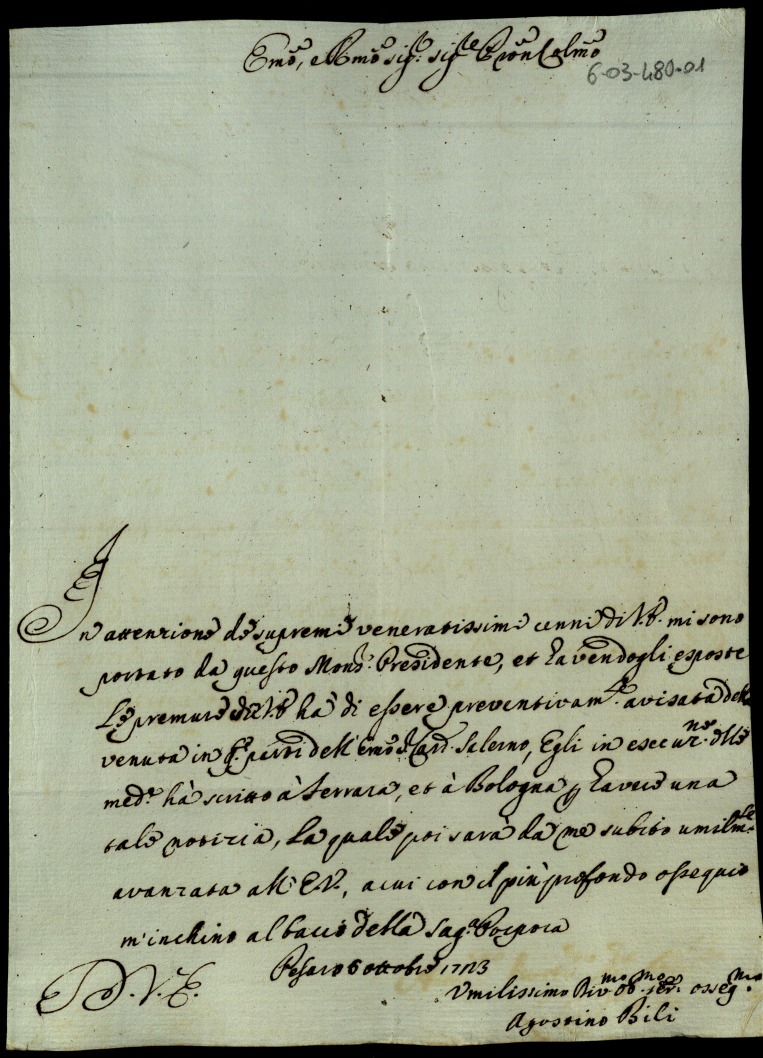 Em̃o, e R̃mo sig.r sig.re P̃ron Col̃mo
6-03-480-01
In attenzione de supremi veneratissimi cenni di V.E. mi sono
portato da questo Mons.r Presidente, et havendogli esposte
le premure che V.E. hà di essere preventivam.te avisata della
venuta in q.te parti dell'Em̃o Card. Salerno, Egli in esecuz.ne delle
med.e hà scritto à Ferrara, et à Bologna p havere una
tale notizia, la quale poi sarà da me subito umilm.te
avanzata all'E.V., a cui con il più profondo ossequio
m'inchino al bacio della Sag.a Porpora
Pesaro 6 ottobre 1723
D. V. E.
Umilissimo Div.mo Ob.mo ser.r osseq.mo
Agostino Bili